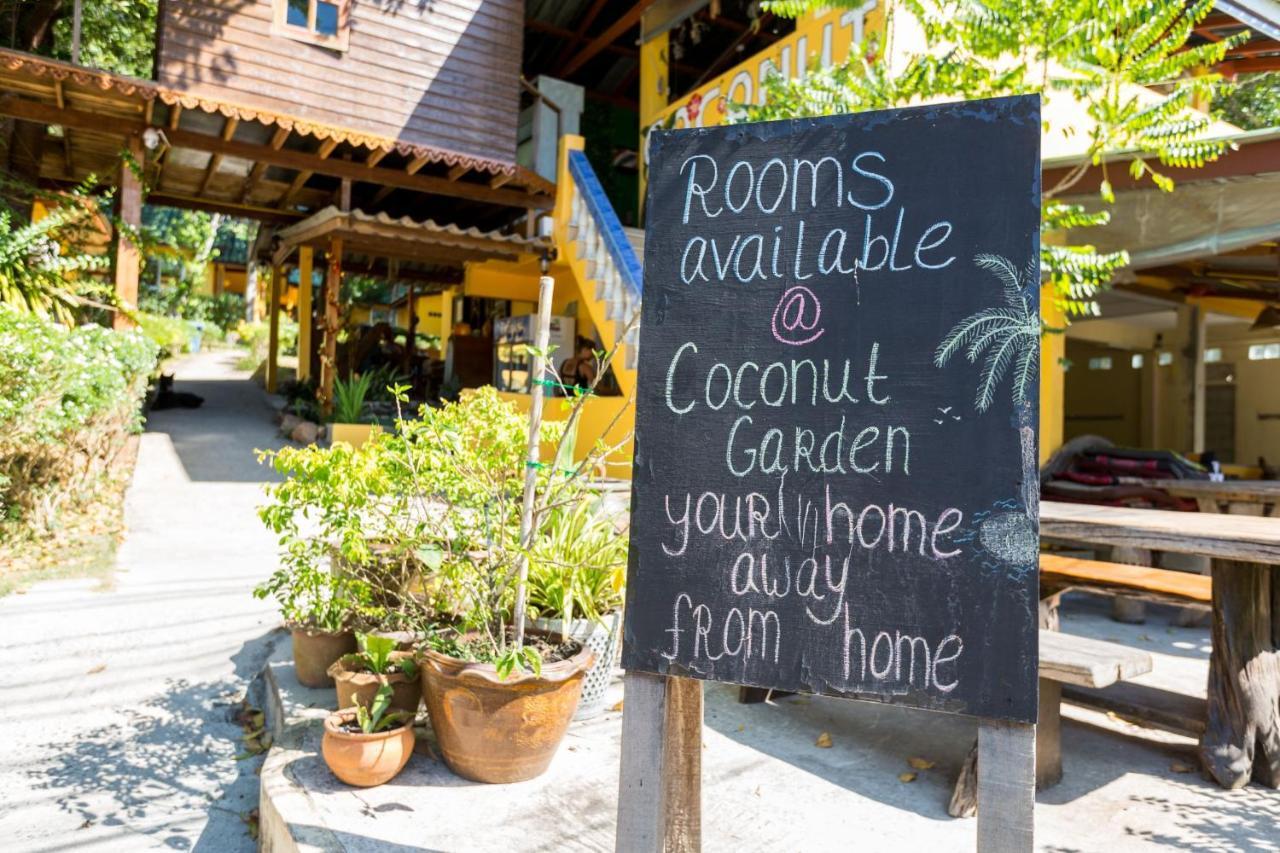 COCONUT
Rooms
available
@
Coconut
Garden
your home
away
from home